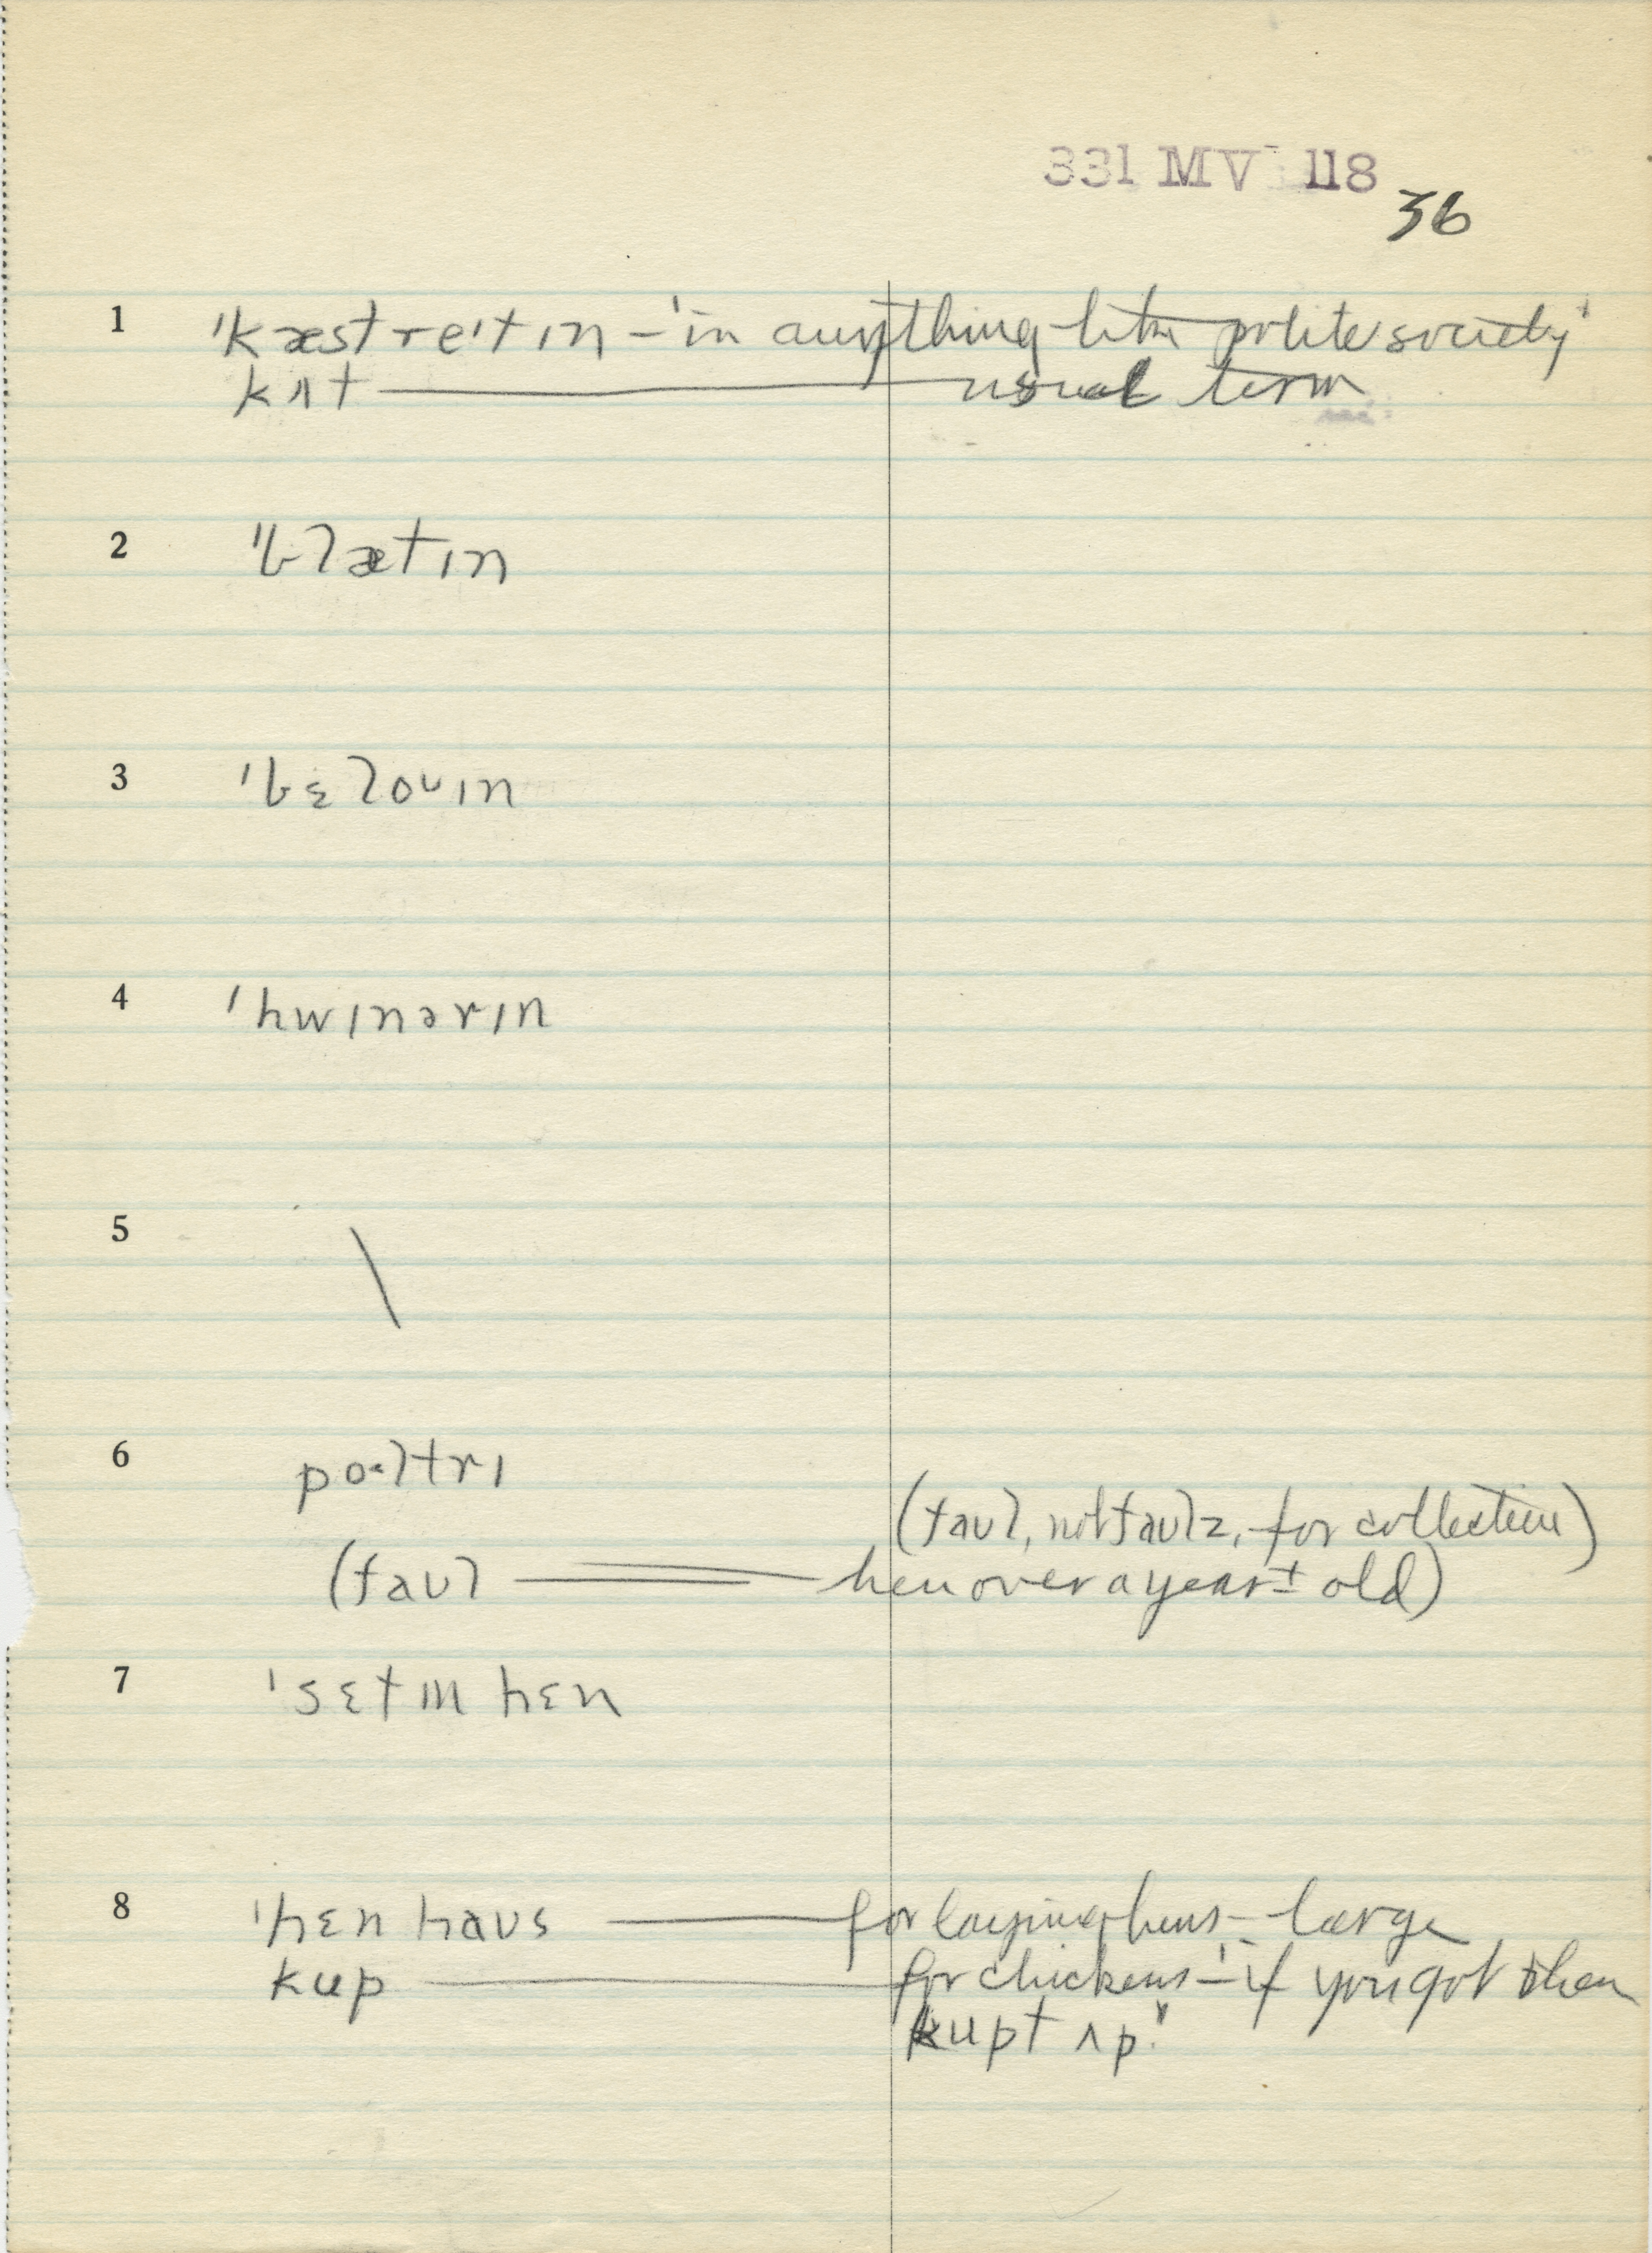 331 MV 118
36
1 ˈkæstreˈtɪn – 'in anything like polite society'
kʌt — usual term
2 ˈblætɪn
3 ˈbɛloᴜɪn
4 ˈhwɪnərɪn
5 \
6 poltrɪ
(faᴜl, not faᴜlz, for collective)
(faᴜl — hen over a year ± old)
7 ˈsɛtɪn hɛn
8 ˈhɛn haᴜs — for laying hens – large
kup — for chickens – 'if you got them
kupt ʌp."